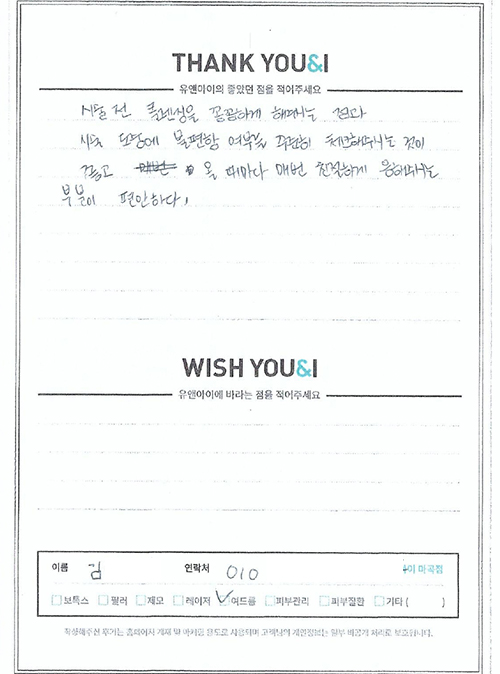 THANK YOU&I
유앤아이의 좋았던 점을 적어주세요
시술 전 클렌징을 꼼꼼하게 해주시는 점과
시술 도중에 불편함 여부를 꾸준히 체크해주시는 것이
좋고 올 때마다 매번 친절하게 응해주시는
부분이 편안하다.
WISH YOU&I
유앤아이에 바라는 점을 적어주세요
이름 김 연락처 010 이 마곡점
보톡스 필러 제모 레이저 여드름 피부관리 피부질환 기타 ( )
작성해주신 후기는 홈페이지 게재 및 마케팅 용도로 사용되며 고객님의 개인정보는 일부 비공개 처리로 보호됩니다.